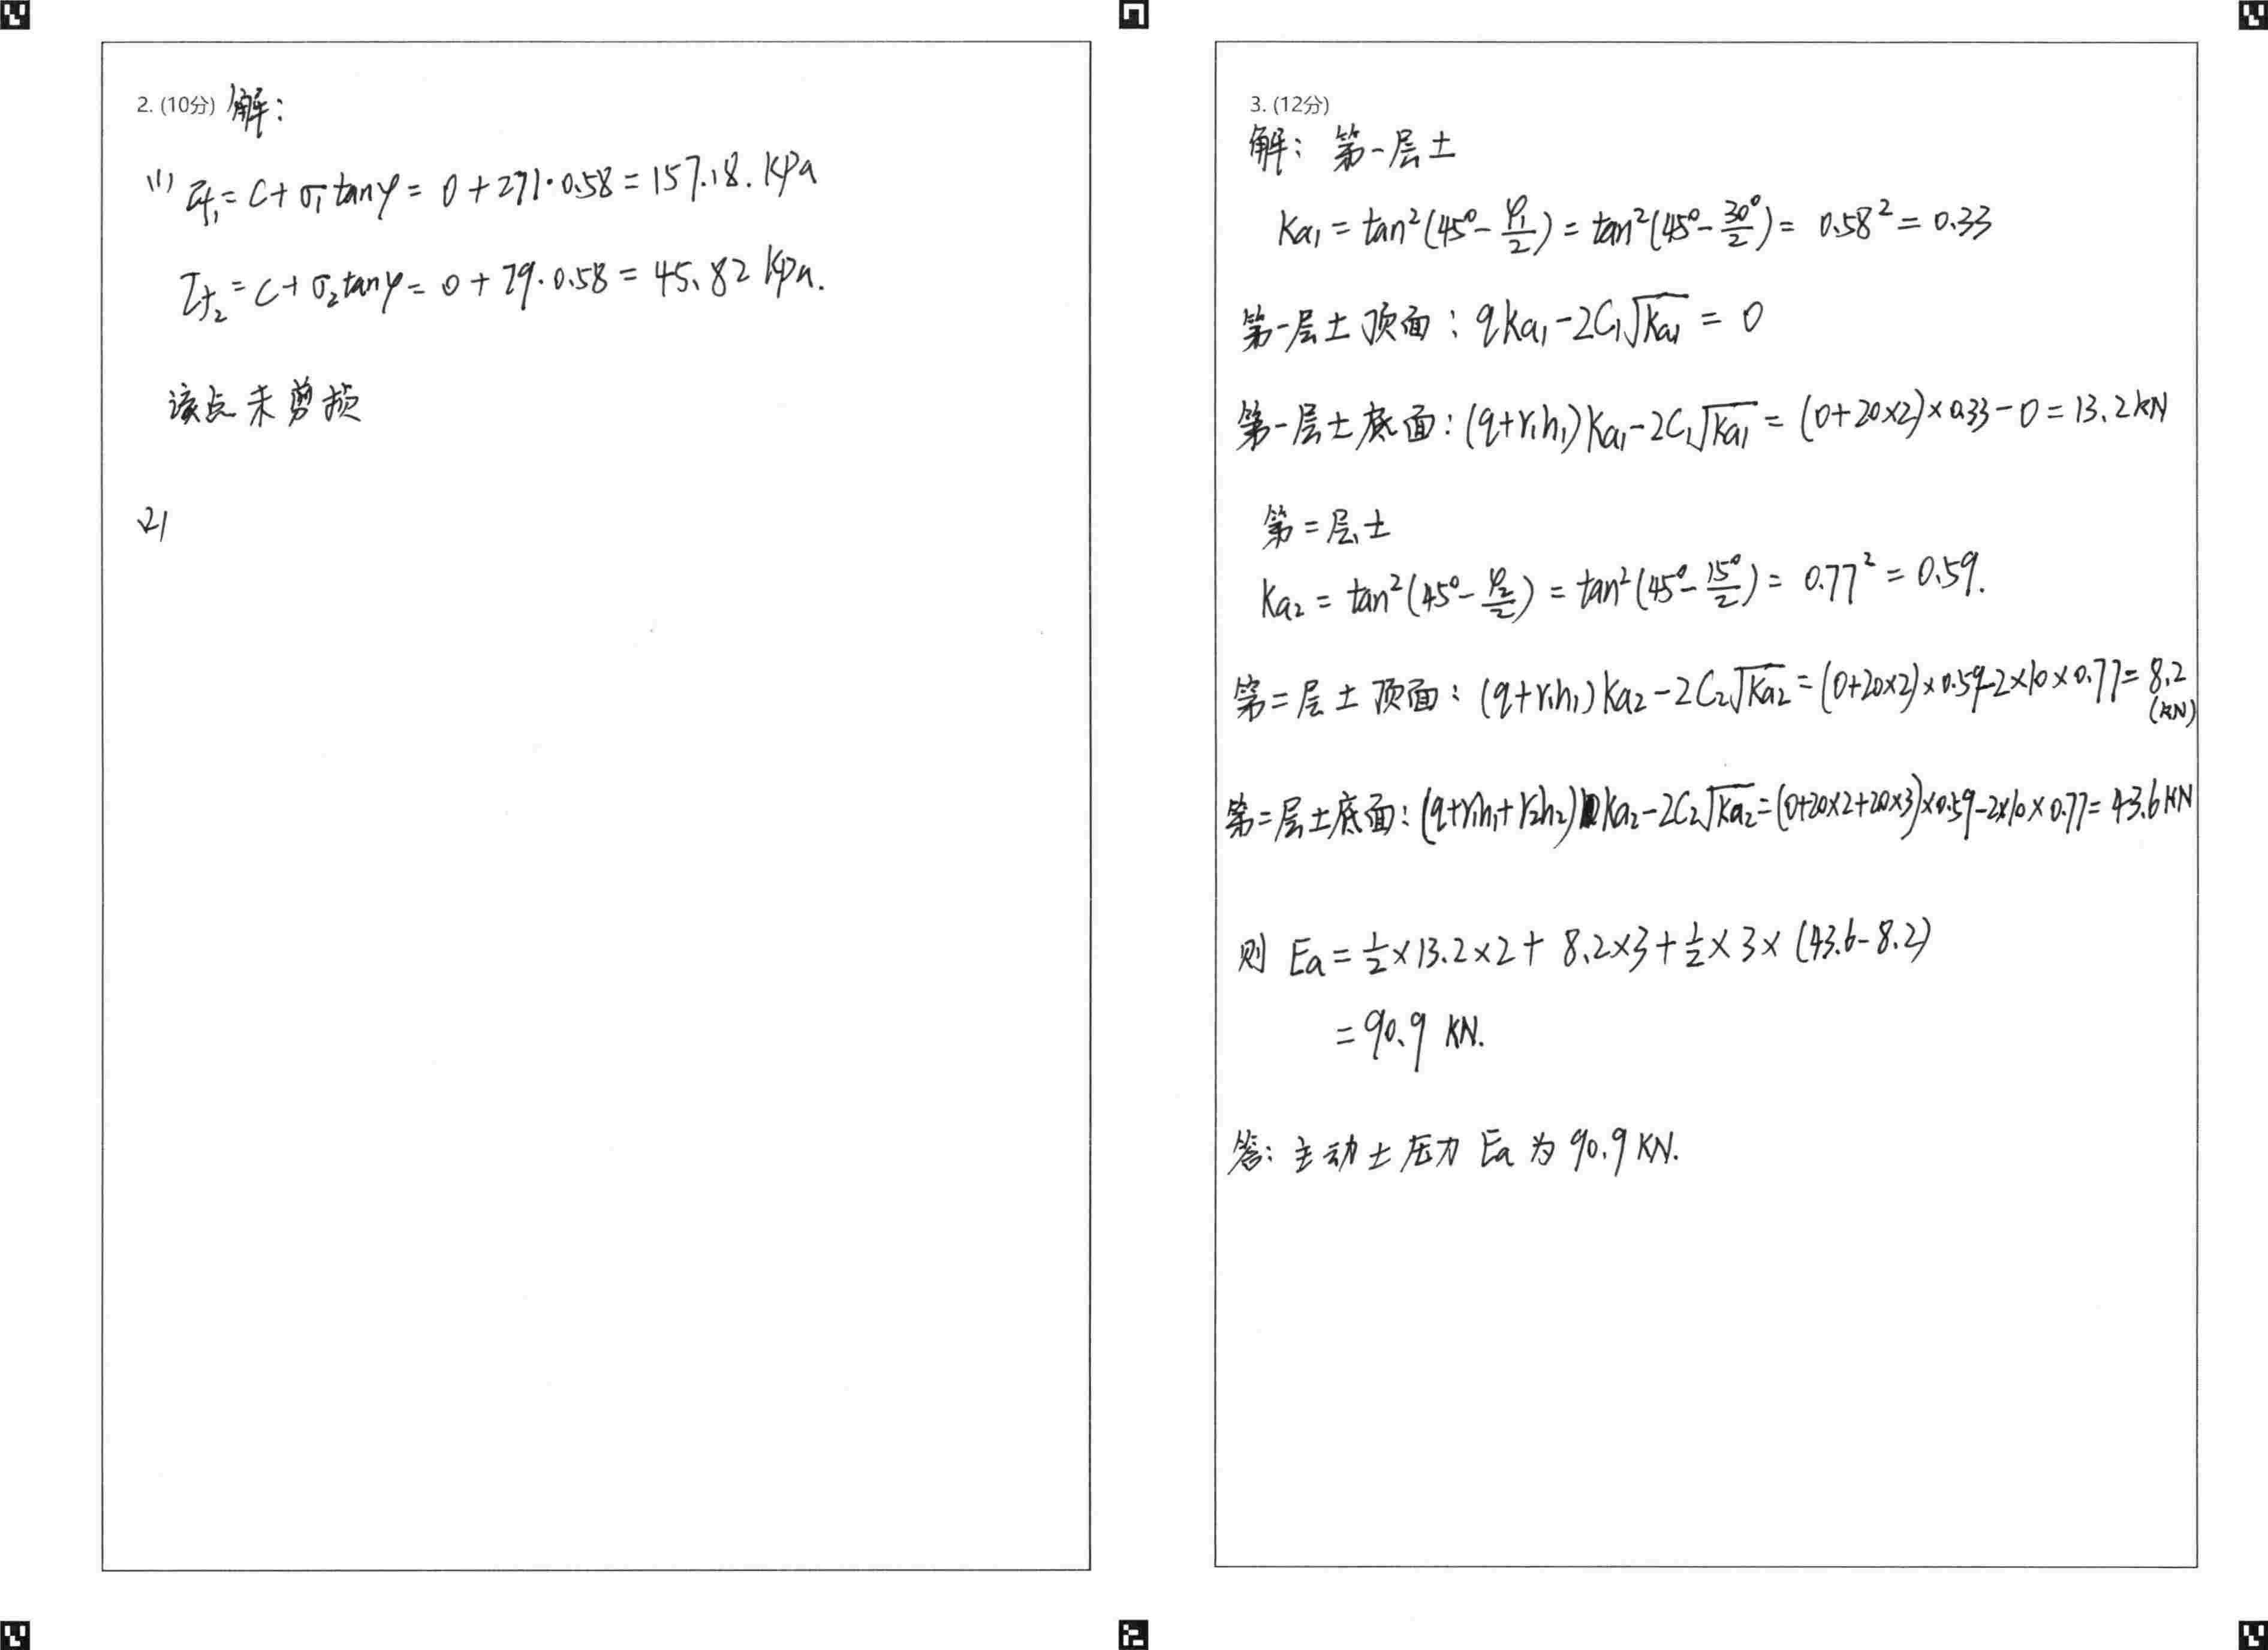 2. (10分) 解:
(1) τf₁ = C + σ₁ tanφ = 0 + 271·0.58 = 157.18. KPa
τf₂ = C + σ₂ tanφ = 0 + 79·0.58 = 45.82 KPa.
该点未剪损
(2)
3. (12分)
解: 第一层土
Ka₁ = tan²(45° - φ₁/2) = tan²(45° - 30°/2) = 0.58² = 0.33
第一层土顶面: qKa₁ - 2C₁√Ka₁ = 0
第一层土底面: (q+r₁h₁)Ka₁ - 2C₁√Ka₁ = (0+20×2)×0.33 - 0 = 13.2 kN
第二层土
Ka₂ = tan²(45° - φ₂/2) = tan²(45° - 15°/2) = 0.77² = 0.59.
第二层土顶面: (q+r₁h₁)Ka₂ - 2C₂√Ka₂ = (0+20×2)×0.59-2×10×0.77 = 8.2 (kN)
第二层土底面: (q+r₁h₁+r₂h₂)Ka₂ - 2C₂√Ka₂ = (0+20×2+20×3)×0.59-2×10×0.77 = 43.6 KN
则 Ea = 1/2×13.2×2 + 8.2×3 + 1/2×3×(43.6-8.2)
= 90.9 KN.
答: 主动土压力 Ea 为 90.9 KN.